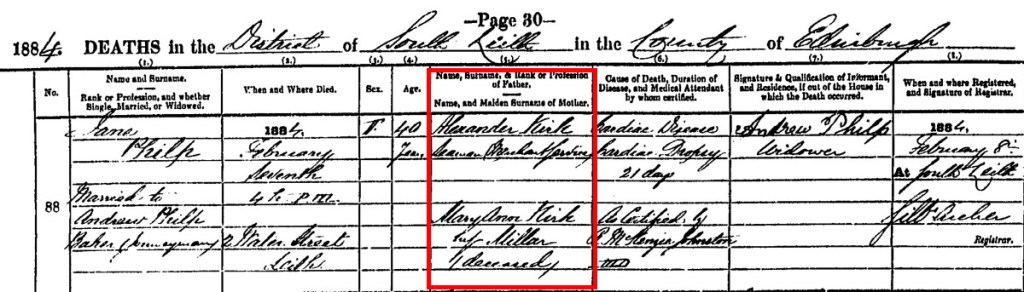 —Page 30—
1884. DEATHS in the District of South Leith in the County of Edinburgh
(1.) (2.) (3.) (4.) (5.) (6.) (7.) (8.)
No.
Name and Surname.
Rank or Profession, and whether
Single, Married, or Widowed.
When and Where Died.
Sex.
Age.
Name, Surname, & Rank or Profession
of Father.
Name, and Maiden Surname of Mother.
Cause of Death, Duration of
Disease, and Medical Attendant
by whom certified.
Signature & Qualification of Informant,
and Residence, if out of the House in
which the Death occurred.
When and where Registered,
and Signature of Registrar.
88
Jane
Philp
Married to
Andrew Philp
Baker (Journeyman)
1884.
February
Seventh
4h PM.
2 Water Street
Leith
F
40
Years
Alexander Kirk
Seaman Merchant Service
Mary Ann Kirk
Millar
(deceased)
Cardiac Disease
Cardiac Dropsy
21 days
As Certified by
McKenzie Johnston
MD
Andrew Philp
Widower
1884.
February 8th
At South Leith
Registrar.